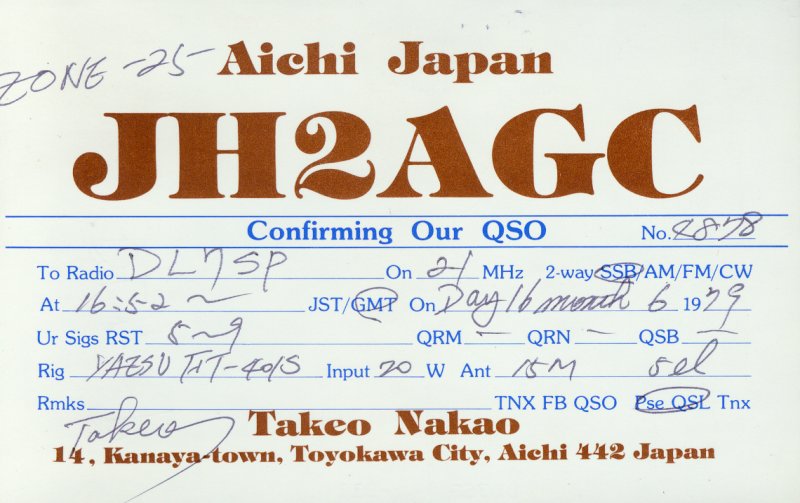 ZONE -25- Aichi Japan
JH2AGC
Confirming Our QSO No. 4878
To Radio DL7SP On 21 MHz 2-way SSB/AM/FM/CW
At 16:52 ~ JST/GMT On Day 16 month 6 1979
Ur Sigs RST 5~9 QRM — QRN — QSB —
Rig YAESU FT-401S Input 20 W Ant 15M 5el
Rmks TNX FB QSO Pse QSL Tnx
Takeo Takeo Nakao
14, Kanaya-town, Toyokawa City, Aichi 442 Japan